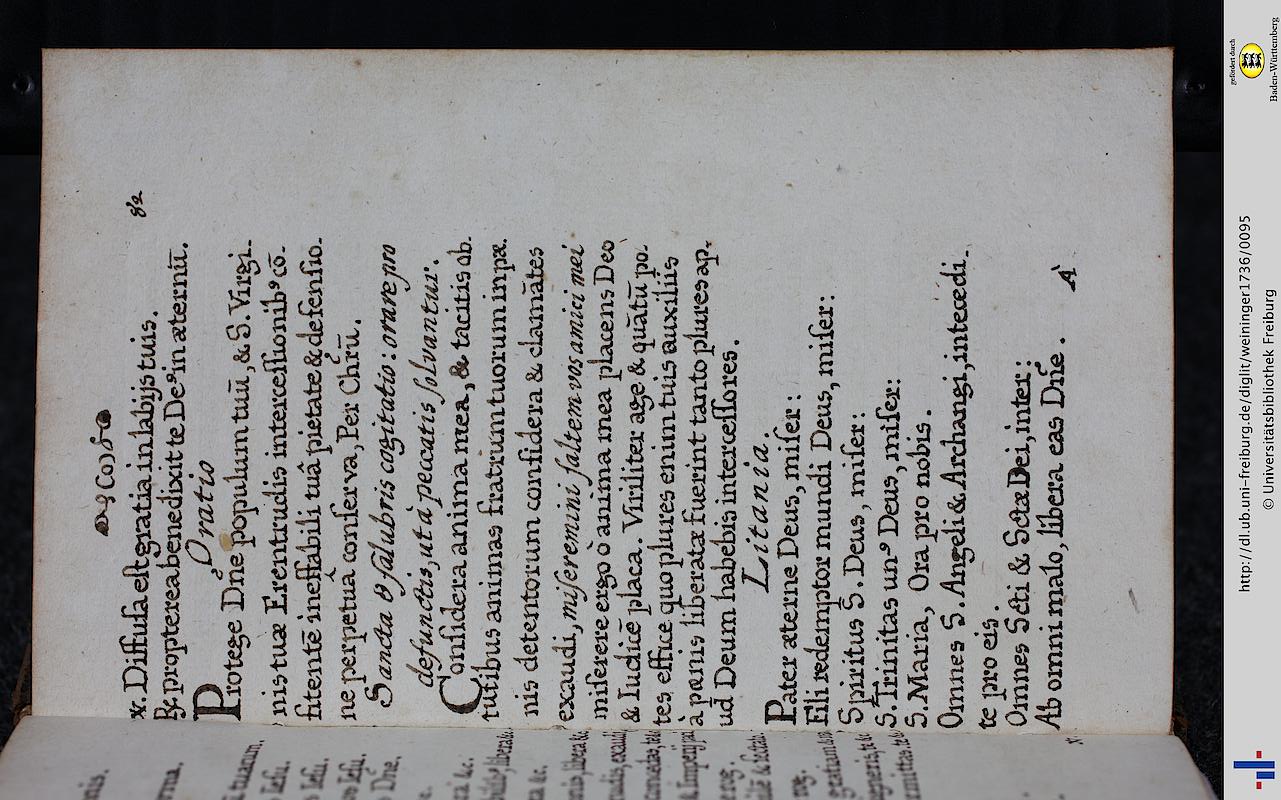 (o)
82
℣. Diffusa est gratia in labijs tuis.
℟. propterea benedixit te Deꝰ in æternū.
Oratio
Protege Dñe populum tuū, & S. Virgi-
nis tuæ Erentrudis intercessionibꝰ cō-
fitentē ineffabili tuâ pietate & defensio-
ne perpetuâ conserva, Per Chrū.
Sancta & salubris cogitatio: orare pro
defunctis, ut à peccatis solvantur.
Considera anima mea, & tacitis ob-
tutibus animas fratrum tuorum in pæ-
nis detentorum considera & clamātes
exaudi, miseremini saltem vos amici mei
miserere ergò ò anima mea placens Deo
& Iudicē placa. Viriliter age & quātū po-
tes effice quo plures enim tuis auxiliis
à pœnis liberatæ fuerint tanto plures ap-
ud Deum habebus intercessores.
Litania.
Pater æterne Deus, miser:
Fili redemptor mundi Deus, miser:
Spiritus S. Deus, miser:
S. Trinitas unꝰ Deus, miser:
S. Maria, Ora pro nobis.
Omnes S. Angeli & Archangi, intecedi-
te pro eis.
Omnes Scti & Sctæ Dei, inter:
Ab omni malo, libera eas Dñe.
A
gefördert durch
Baden-Württemberg
http://dl.ub.uni-freiburg.de/diglit/weininger1736/0095
© Universitätsbibliothek Freiburg